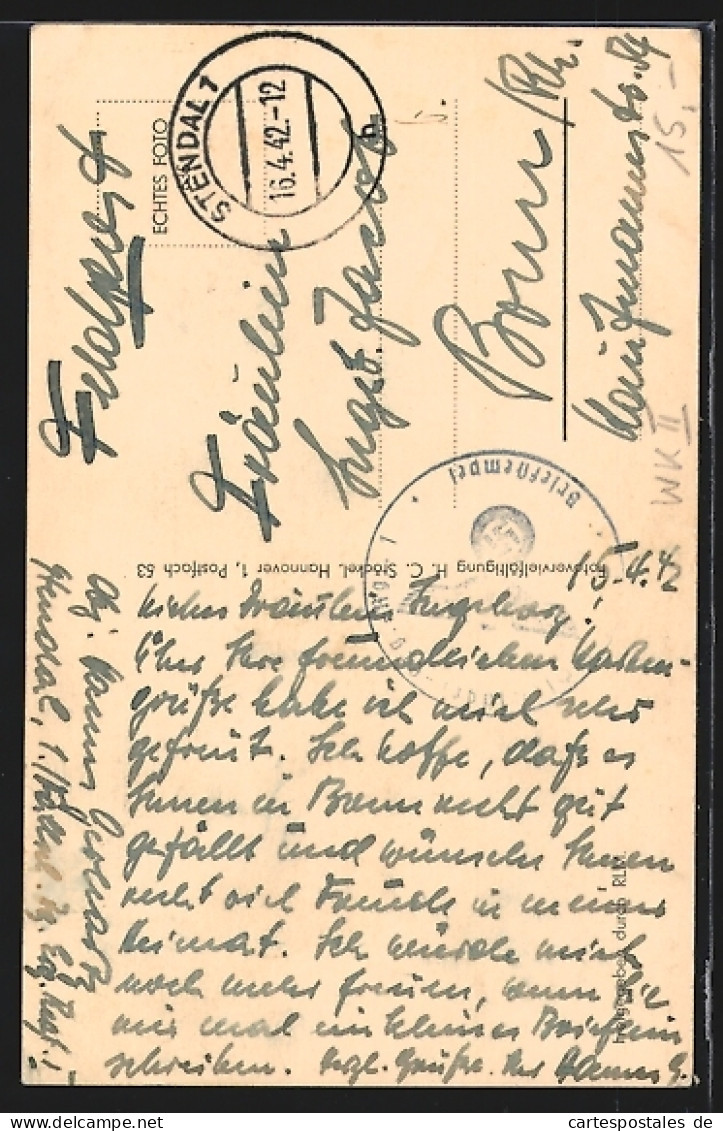 Feldpost
ECHTES FOTO
STENDAL 1
16.4.42.-12
h
Fräulein
Ingeb. Jacob
Bonn/Rh.
15,-
WK II
Briefstempel
Fotovervielfältigung H. C. Stöckel, Hannover 1, Postfach 53
Freigegeben durch RLM
Abs. Hanns
Stendal, 1./
15.4.42
Liebes Fräulein Ingeborg!
Über Ihre freundlichen Karten-
grüße habe ich mich sehr
gefreut. Ich hoffe, daß es
Ihnen in Bonn recht gut
gefällt und wünsche Ihnen
recht viel Freude in meiner
Heimat. Ich würde mich
noch mehr freuen, wenn Sie
mir mal ein kleines Brieflein
schreiben. Hrzl. Grüße. Ihr Hanns G.
www.cartespostales.de
cartespostales de